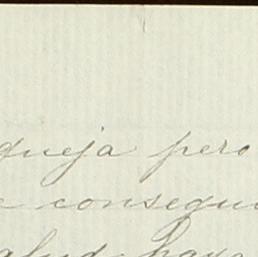 queja pero
consegui
alud haya